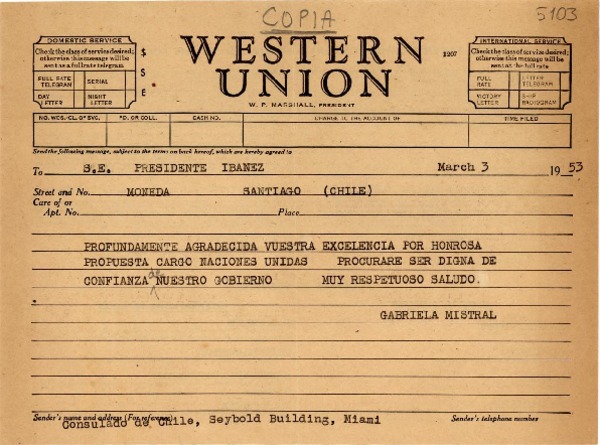 COPIA
5103
DOMESTIC SERVICE
Check the class of service desired;
otherwise this message will be
sent as a full rate telegram
FULL RATE TELEGRAM
SERIAL
DAY LETTER
NIGHT LETTER
$
S
E
WESTERN
UNION
1207
W. P. MARSHALL, PRESIDENT
INTERNATIONAL SERVICE
Check the class of service desired;
otherwise this message will be
sent at the full rate
FULL RATE
LETTER TELEGRAM
VICTORY LETTER
SHIP RADIOGRAM
NO. WDS.-CL. OF SVC.
PD. OR COLL.
CASH NO.
CHARGE TO THE ACCOUNT OF
TIME FILED
Send the following message, subject to the terms on back hereof, which are hereby agreed to
To S.E. PRESIDENTE IBANEZ March 3 19 53
Street and No. MONEDA SANTIAGO (CHILE)
Care of or
Apt. No. Place
PROFUNDAMENTE AGRADECIDA VUESTRA EXCELENCIA POR HONROSA
PROPUESTA CARGO NACIONES UNIDAS PROCURARE SER DIGNA DE
CONFIANZA de NUESTRO GOBIERNO MUY RESPETUOSO SALUDO.
GABRIELA MISTRAL
Sender's name and address (For reference)
Sender's telephone number
Consulado de Chile, Seybold Building, Miami